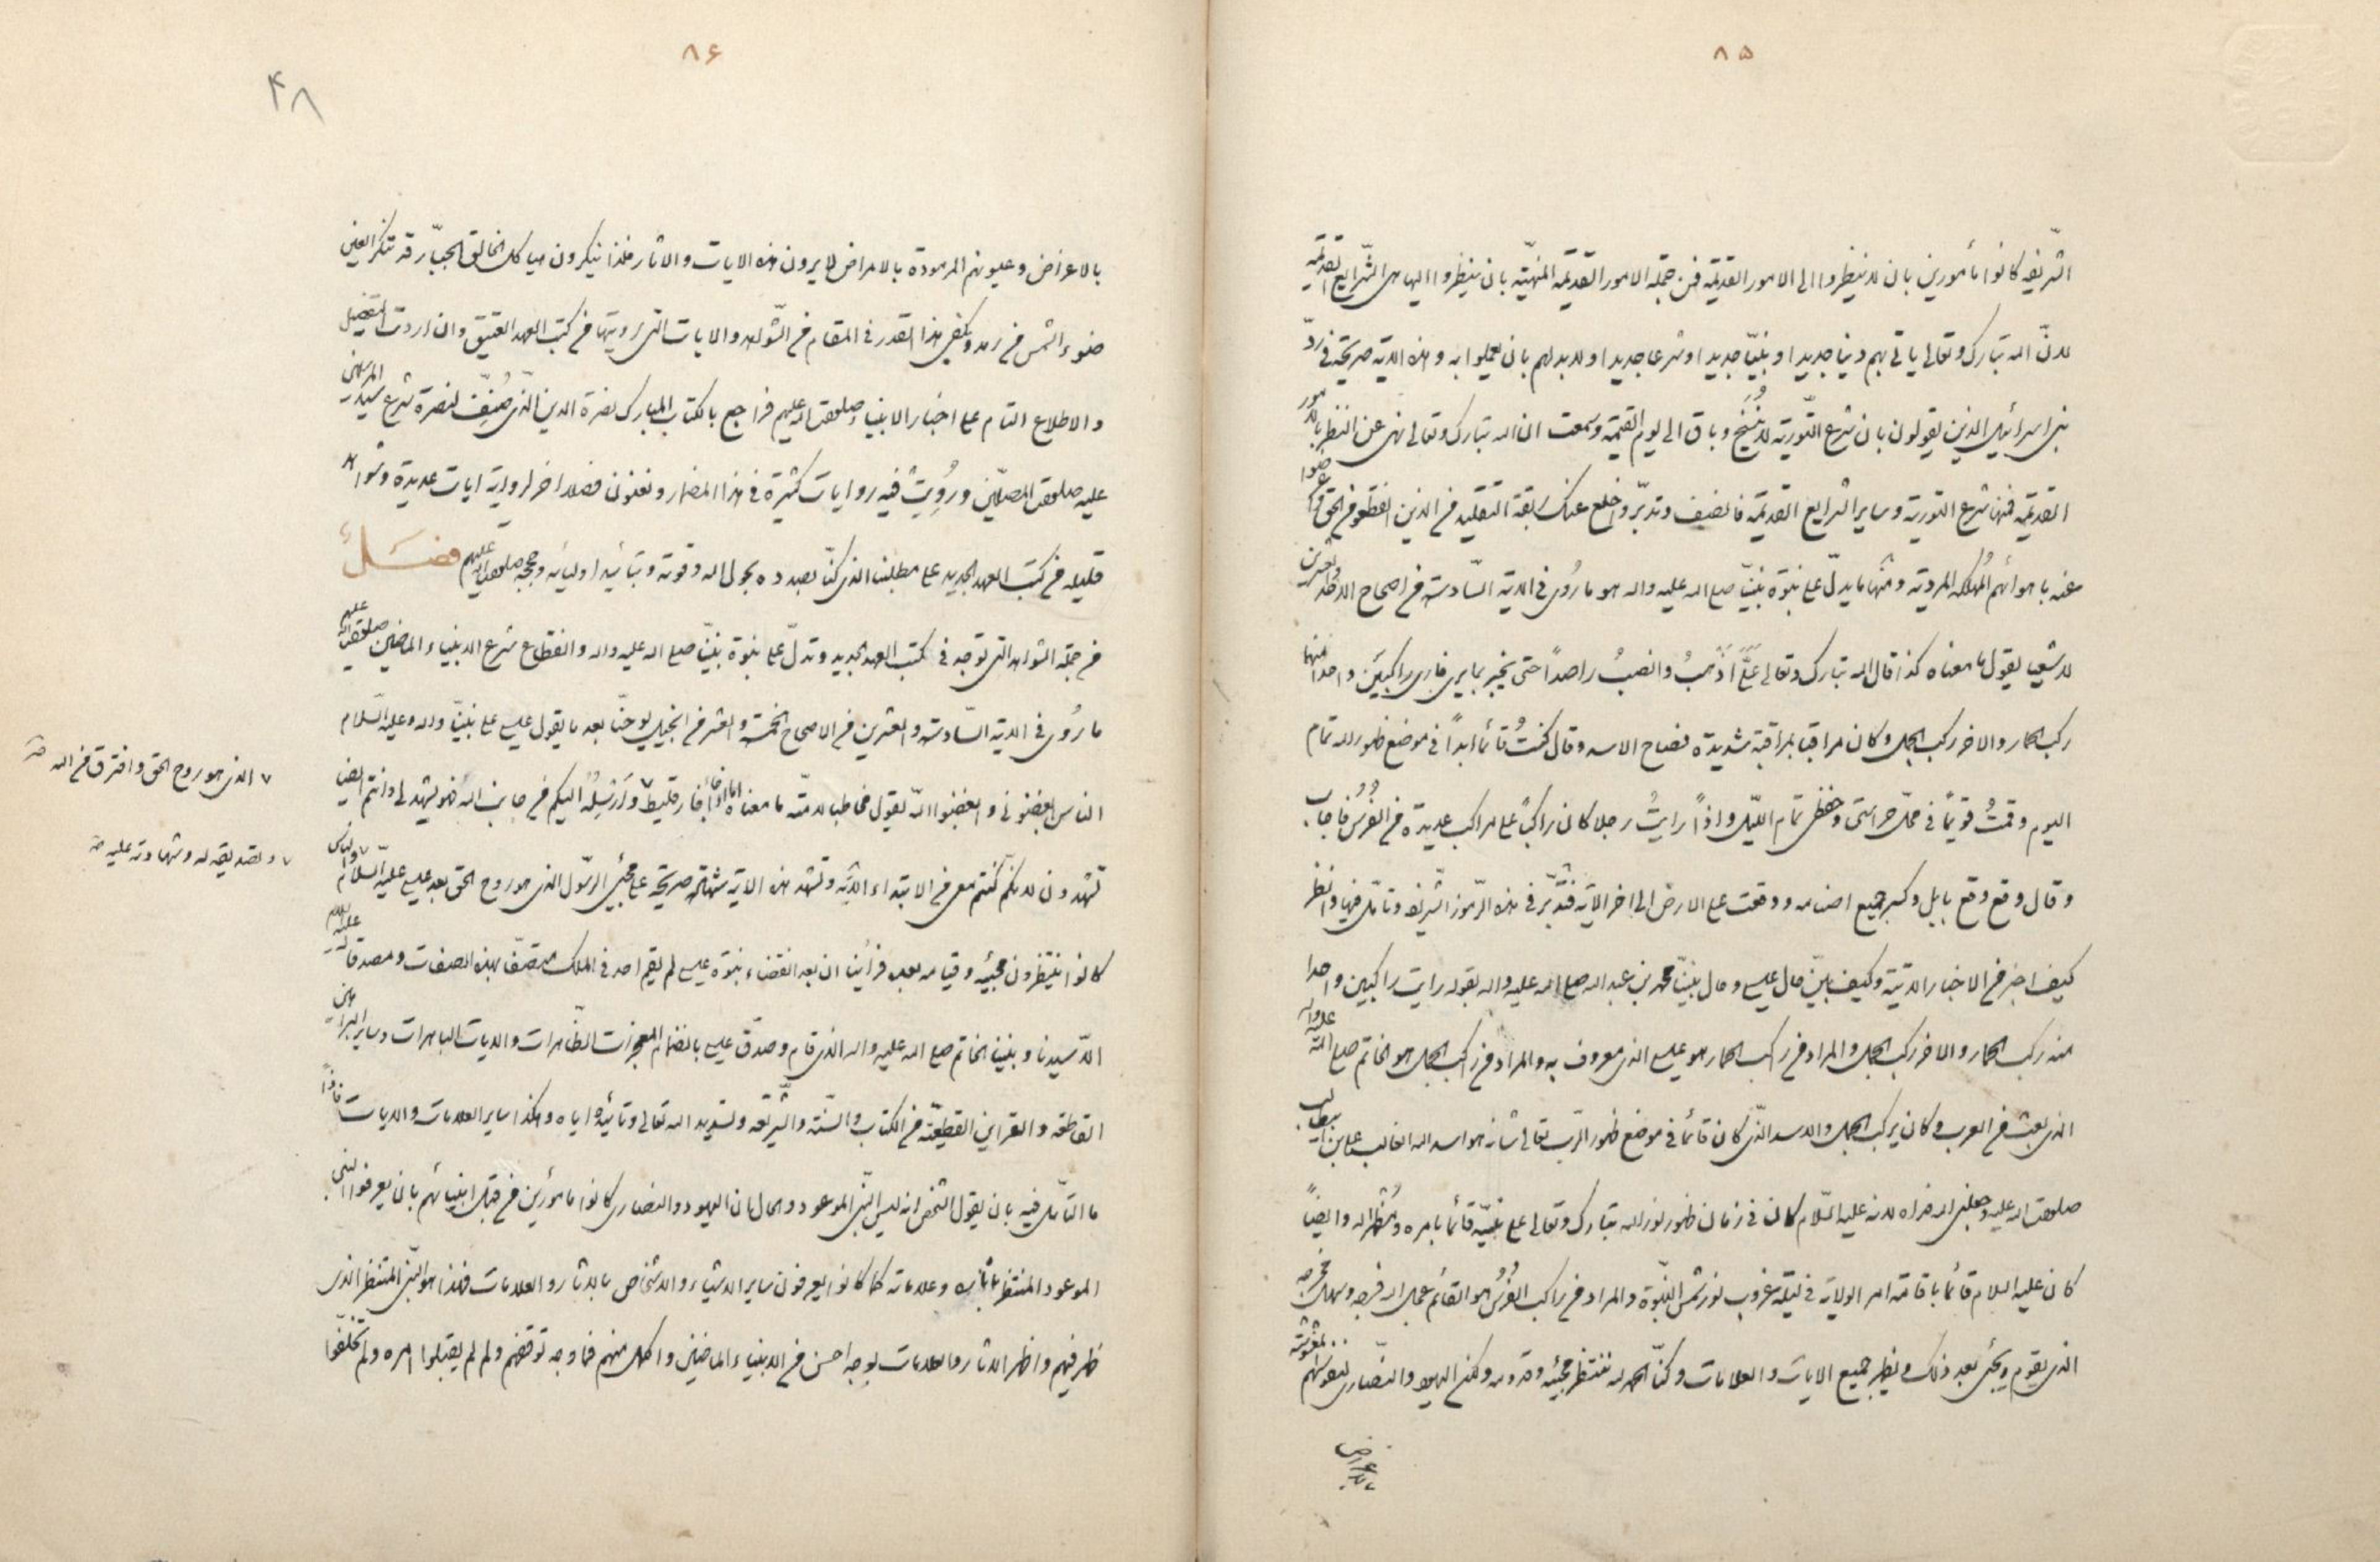 ٨٥
الشّريفه كانوا مأمورين بان لا ينظروا الى الامور القديمة فمن جملة الامور القديمة المنهيّة بان ينظروا اليها هى الشّرايع القديمة
لانّ الله تبارك وتعالى ياتى بهم دينا جديدا او نبيّا جديدا او شرعا جديدا ولابد لهم بان يعملوا به وهذه الاية صريحة فى ردّ
بنى اسرائيل الذين يقولون بان شرع التّورية لا يُنسَخ وباق الى يوم القيمة وسمعت ان الله تبارك وتعالى نهى عن النظر بالامور
القديمة فمنها شرع التورية وساير الشرايع القديمة فانصف وتدبّر واخلع عنك ربقة التقليد من الذين انقطعوا من الحق واعرضوا
عنه باهوائهم المُهلكه المردية ومنها ما يدلّ على نبوة نبيّنا صلى الله عليه واله هو ما رُوى فى الاية السّادسة من اصحاح الاحد والعشرين
لاشعيا يقول ما معناه كذا قال الله تبارك وتعالى عَلَىَّ اذهبُ وانصبُ راصداً حتى يخبر بما يرى فارى راكبَين واحدا منهما
ركب الحمار والاخر ركب الجمل وكان مراقبا بمراقبة شديدة فصاح الاسد وقال كنتُ قائما ابداً فى موضع ظهور الله تمام
اليوم وقمتُ قوياً فى محلّ حراستى وحفظى تمام اللّيل واذاً رايتُ رجلا كان راكباً على مراكب عديدة من الفُرُس فاجاب
وقال وقع وقع بابل وكسر جميع اصنامه ووقعت على الارض الى اخر الاية فتدبّر فى هذه الرّموز الشّريفه وتامّل فيها وانظر
كيف اخبر من الاخبار الاتية وكيف بيّن حال عيسى وحال نبيّنا محمد بن عبد الله صلى الله عليه واله بقوله رايت راكبين واحدا
منه ركب الحمار والاخر ركب الجمل والمراد من راكب الحمار هو عيسى الذى معروف به والمراد من راكب الجمل هو الخاتم صلى الله عليه واله
الذى بعث من العرب وكان يركب الجمل والاسد الذّى كان قائما فى موضع ظهور الرّب تعالى شانه هو اسد الله الغالب على بن ابيطالب
صلوات الله عليه وجعلنى الله فداه لانه عليه السّلام كان فى زمان ظهور نور الله تبارك وتعالى على نبيّه قائما بامره ومُظهرا له وايضاً
كان عليه السلام قائما باقامة امر الولاية فى ليلة غروب نور شمس النّبوة والمراد من راكب الفُرُس هو القائم عجل الله فرجه وسهل مخرجه
الذى يقوم ويجئ بعد ذلك ويظهر جميع الايات والعلامات وكنّا الحمد لله ننتظر مجيئه وقدومه ولكن اليهود والنّصارى لنفوسهم المغشوشة
بالاعراض
٨۶
۴٨
بالاعراض وعيونهم المرمودة بالامراض لا يرون هذه الايات والاثار فلذا ينكرون هياكل الخالق الجبّار قد تنكر العين
ضوء الشمس من رمد ويكفى هذا القدر فى المقام من الشّواهد والايات التى رويتها من كتب العهد العتيق وان اردت التفصيل
والاطلاع التام على اخبار الانبياء صلوات الله عليهم فراجع بالكتاب المبارك نصرة الدين الّذى صُنِّف لنصرة شرع سيد المرسلين
عليه صلوات المصلّين ورُوِيَتْ فيه روايات كثيرة فى هذا المضمار ونعنون فصلا اخر لرواية ايات عديدة وشواهد
قليله من كتب العهد الجديد على مطلبنا الذى كنّا بصدده بحول الله وقوته وبتائيد اوليائه وحججه صلوات الله عليهم فصل
من جملة الشواهد التى توجد فى كتب العهد الجديد وتدلّ على نبوة نبيّنا صلى الله عليه واله وانقطاع شرع الانبياء الماضين صلوات الله عليهم
ما رُوى فى الاية السّادسة والعشرين من الاصحاح الخمسة والعشر من انجيل يوحنّا بعد ما يقول عيسى على نبيّنا واله وعليه السّلام
الناس ابغضونى وابغضوا الله يقول مخاطبا لامّته ما معناه اما اذا جأ فارقليط ٧ وارسِلُه اليكم من جانب الله فهو يشهد لى وانتم ايضا
٧ الذى هو روح الحق وافترق من الله صح
تشهدون لانكم كنتم معى من الابتداء الاية وتشهد هذه الاية شهادة صريحة على مجئ الرّسول الذى هو روح الحق بعد عيسى عليه السّلام ٧ والناس
٧ وتصديقه له وشهادته عليه صح
كانوا ينتظرون مجيئه وقيامه بعده فراينا ان بعد انقضاء نبوة عيسى لم يقم احد فى الملك متصفّ بهذه الصفات ومصدقا له عليه السلام
الّا سيدنا ونبينا الخاتم صلى الله عليه واله الذى قام وصدّق عيسى بانضمام المعجزات الظاهرات والايات الباهرات وساير البراهين
القاطعة والقراين القطعيّة من الكتاب والسنّة والشّريعة وتسديد الله تعالى وتائيده اياه وهكذا ساير العلامات والايات فاذاً
ما التّامّل فيه بان يقول الشخص انه ليس النّبى الموعود والحال ان اليهود والنصارى كانوا مامورين من قبل انبيائهم بان يعرفوا النبى
الموعود المنتظر باثاره وعلاماته كما كانوا يعرفون ساير الاشياء والاشخاص بالاثار والعلامات فهذا هو النّبى المنتظر الذى
ظهر فيهم واظهر الاثار والعلامات بوجه احسن من الانبياء الماضين واكمل منهم فما وجه توقفهم ولم لم يقبلوا امره ولم تخلفوا